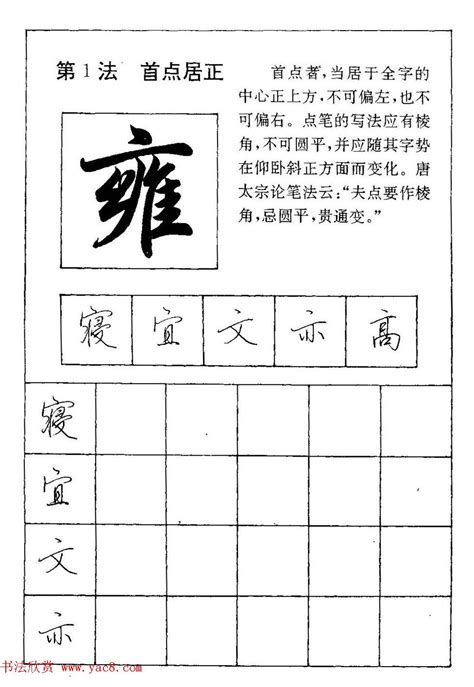 第1法 首点居正
首点著,当居于全字的
中心正上方,不可偏左,也不
可偏右。点笔的写法应有棱
角,不可圆平,并应随其字势
在仰卧斜正方面而变化。唐
太宗论笔法云:“夫点要作棱
角,忌圆平,贵通变。”
雍
寝 宜 文 亦 高
寝
宜
文
亦
书法欣赏 www.yac8.com